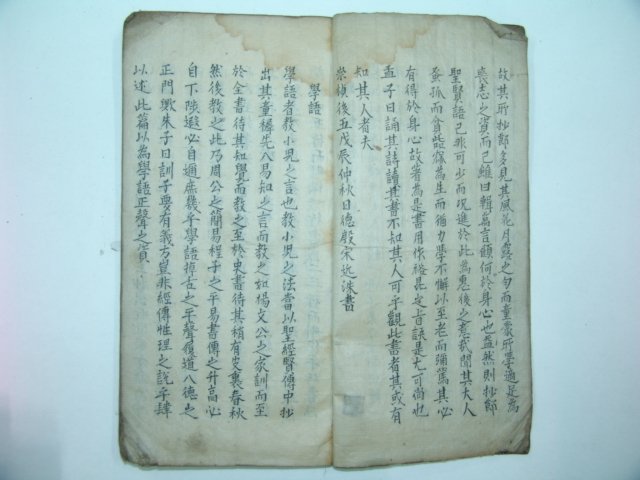 故其所抄節多見其風花月露之句而童蒙所學適足爲
喪志之資而已雖曰輯爲言顧何於身心也益然則抄節
聖賢語已非可少而况進於此爲惠後之意我聞其夫人
蚤孤而貧能爲生而循力學不懈以至老而彌篤其必
有得於身心故著爲是書用作後昆定省誤是尤可尚也
孟子曰誦其詩讀其書不知其人可乎觀此書者其或有
知其人者夫
崇禎後五戊辰仲秋日德殷宋近洙書
學語
學語者教小兒之言也教小兒之法當以聖經賢傳中抄
出其童穉先入易知之言而教之如楊文公之家訓而至
於全書待其知覺而教之至於史書待其稍有皮裏春秋
然後教之此乃周公之簡易程子之平易書傳之升高必
自下陟遐必自邇庶幾乎學語掉古之平聲履道入德之
正門墩朱子曰訓子要有義方豈非經傳性理之說乎肆
以述此篇以為學語正聲之資